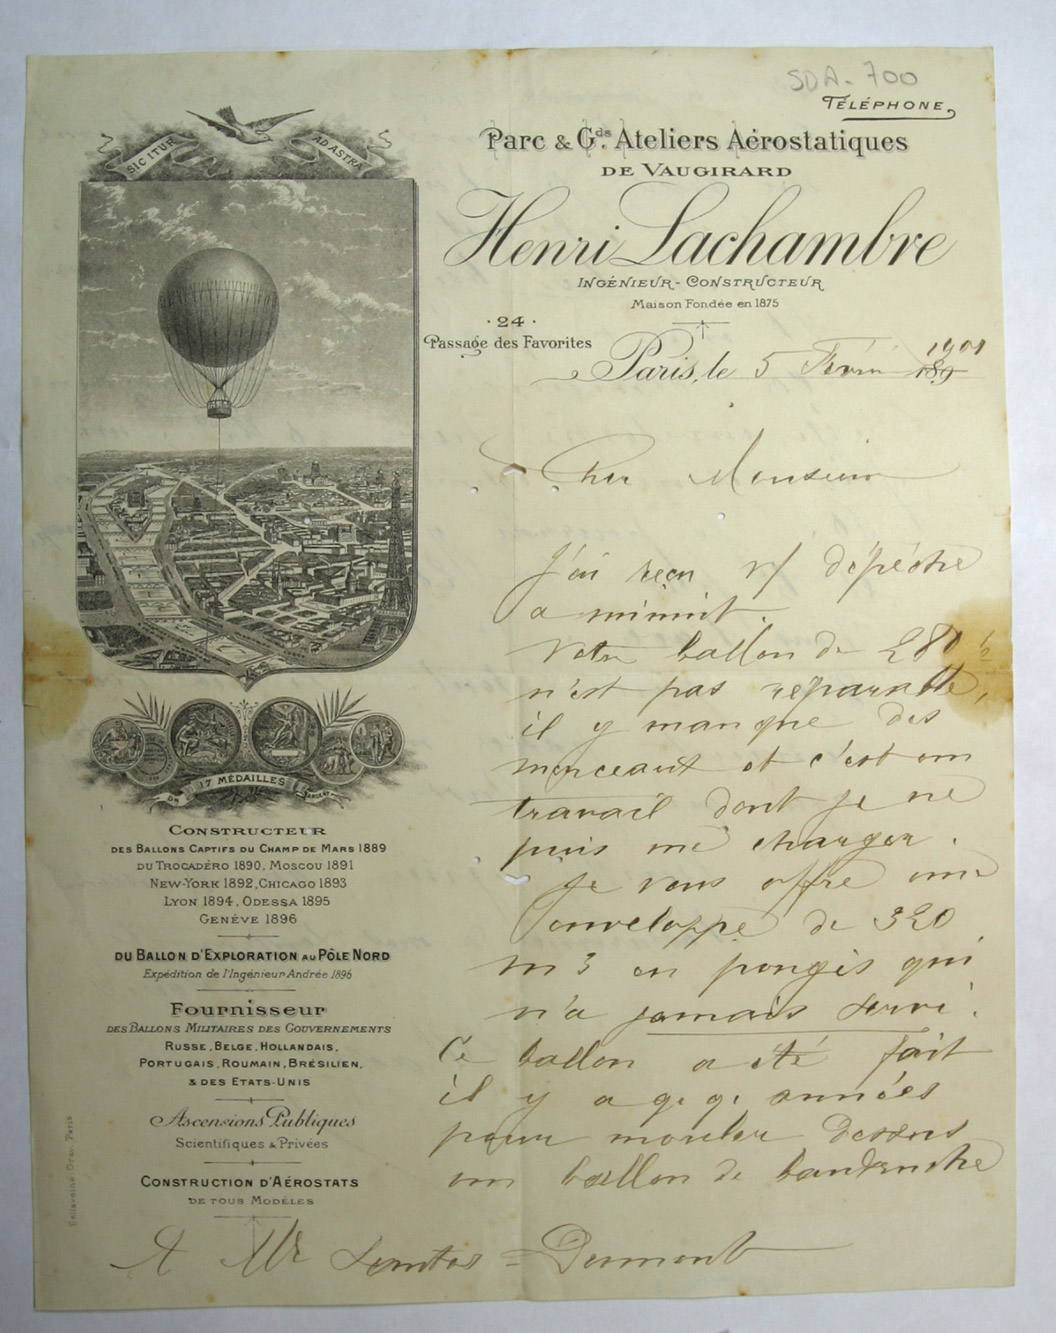 SDA-700
TÉLÉPHONE
Parc & Gds. Ateliers Aérostatiques
DE VAUGIRARD
Henri Lachambre
INGÉNIEUR-CONSTRUCTEUR
Maison Fondée en 1875
· 24 ·
Passage des Favorites
Paris, le 5 Février 189 1901
SIC ITUR AD ASTRA
17 MÉDAILLES
OR ARGENT
CONSTRUCTEUR
DES BALLONS CAPTIFS DU CHAMP DE MARS 1889
DU TROCADÉRO 1890, MOSCOU 1891
NEW-YORK 1892, CHICAGO 1893
LYON 1894, ODESSA 1895
GENÈVE 1896
DU BALLON D'EXPLORATION AU PÔLE NORD
Expédition de l'Ingénieur Andrée 1896
FOURNISSEUR
DES BALLONS MILITAIRES DES GOUVERNEMENTS
RUSSE, BELGE, HOLLANDAIS,
PORTUGAIS, ROUMAIN, BRÉSILIEN,
& DES ETATS-UNIS
Ascensions Publiques
Scientifiques & Privées
CONSTRUCTION D'AÉROSTATS
DE TOUS MODÈLES
Cher Monsieur
J'ai reçu v/ dépéche
a minuit.
Votre ballon de 280
n'est pas reparable,
il y manque des
morceaux et c'est un
travail dont je ne
puis me charger.
Je vous offre une
enveloppe de 320
m3 en pongés qui
n'a jamais servi.
Ce ballon a été fait
il y a q.q. années
pour mouler dessus
un ballon de baudruche
A Mr Santos = Dumont